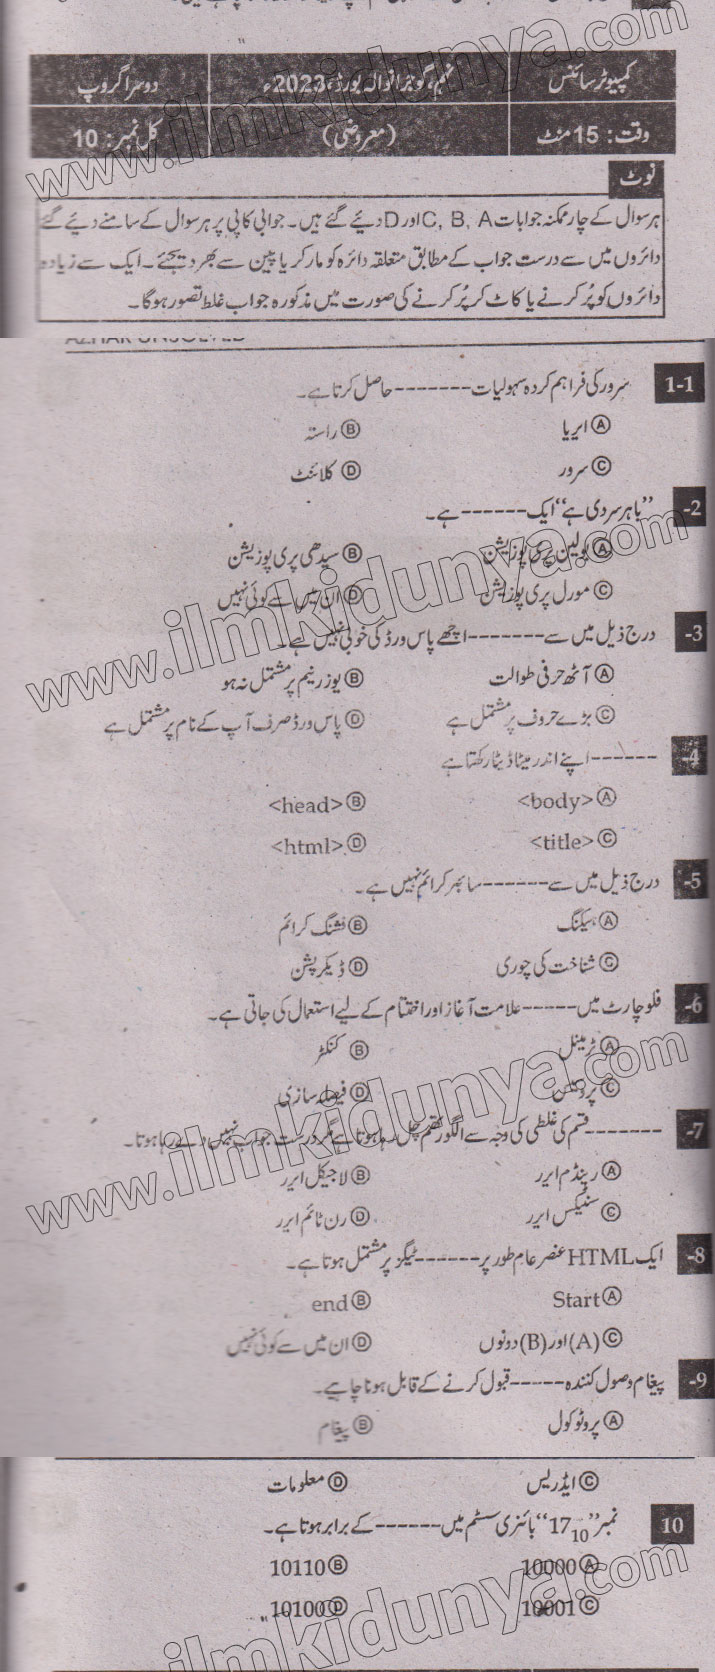 کمپیوٹر سائنس نہم، گوجرانوالہ بورڈ، 2023ء دوسرا گروپ
وقت: 15 منٹ (معروضی) کل نمبر: 10
نوٹ
ہر سوال کے چار ممکنہ جوابات C, B, A اور D دیئے گئے ہیں۔ جوابی کاپی پر ہر سوال کے سامنے دیئے گئے
دائروں میں سے درست جواب کے مطابق متعلقہ دائرہ کو مارکر یا پین سے بھر دیجئے۔ ایک سے زیادہ
دائروں کو پُر کرنے یا کاٹ کر پُر کرنے کی صورت میں مذکورہ جواب غلط تصور ہوگا۔
AZHAR UNSOLVED
1-1 سرور کی فراہم کردہ سہولیات ------- حاصل کرتا ہے۔
Ⓐ ایریا Ⓑ راستہ
Ⓒ سرور Ⓓ کلائنٹ
2- ’’باہر سردی ہے‘‘ ایک ------ ہے۔
Ⓐ بولین پری پوزیشن Ⓑ سیدھی پری پوزیشن
Ⓒ مورل پری پوزیشن Ⓓ ان میں سے کوئی نہیں
3- درج ذیل میں سے ------- اچھے پاس ورڈ کی خوبی نہیں ہے۔
Ⓐ آٹھ حرفی طوالت Ⓑ یوزر نیم پر مشتمل نہ ہو
Ⓒ بڑے حروف پر مشتمل ہے Ⓓ پاس ورڈ صرف آپ کے نام پر مشتمل ہے
4- ------ اپنے اندر میٹا ڈیٹا رکھتا ہے
Ⓐ <body> Ⓑ <head>
Ⓒ <title> Ⓓ <html>
5- درج ذیل میں سے ------ سائبر کرائم نہیں ہے۔
Ⓐ ہیکنگ Ⓑ فشنگ کرائم
Ⓒ شناخت کی چوری Ⓓ ڈیکرپشن
6- فلو چارٹ میں ----- علامت آغاز اور اختتام کے لیے استعمال کی جاتی ہے۔
Ⓐ ٹرمینل Ⓑ کنکٹر
Ⓒ پروسیس Ⓓ فیصلہ سازی
7- ------- قسم کی غلطی کی وجہ سے الگورتھم چل رہا ہوتا ہے مگر درست جواب نہیں دے رہا ہوتا۔
Ⓐ رینڈم ایرر Ⓑ لاجیکل ایرر
Ⓒ سنٹیکس ایرر Ⓓ رن ٹائم ایرر
8- ایک HTML عنصر عام طور پر ------ ٹیگز پر مشتمل ہوتا ہے۔
Ⓐ Start Ⓑ end
Ⓒ (A) اور (B) دونوں Ⓓ ان میں سے کوئی نہیں
9- پیغام وصول کنندہ ----- قبول کرنے کے قابل ہونا چاہیے۔
Ⓐ پروٹوکول Ⓑ پیغام
Ⓒ ایڈریس Ⓓ معلومات
10 نمبر ’’17₁₀‘‘ بائنری سسٹم میں ------ کے برابر ہوتا ہے۔
Ⓐ 10000 Ⓑ 10110
Ⓒ 10001 Ⓓ 10100
www.ilmkidunya.com
www.ilmkidunya.com
www.ilmkidunya.com
ilmkidunya.com